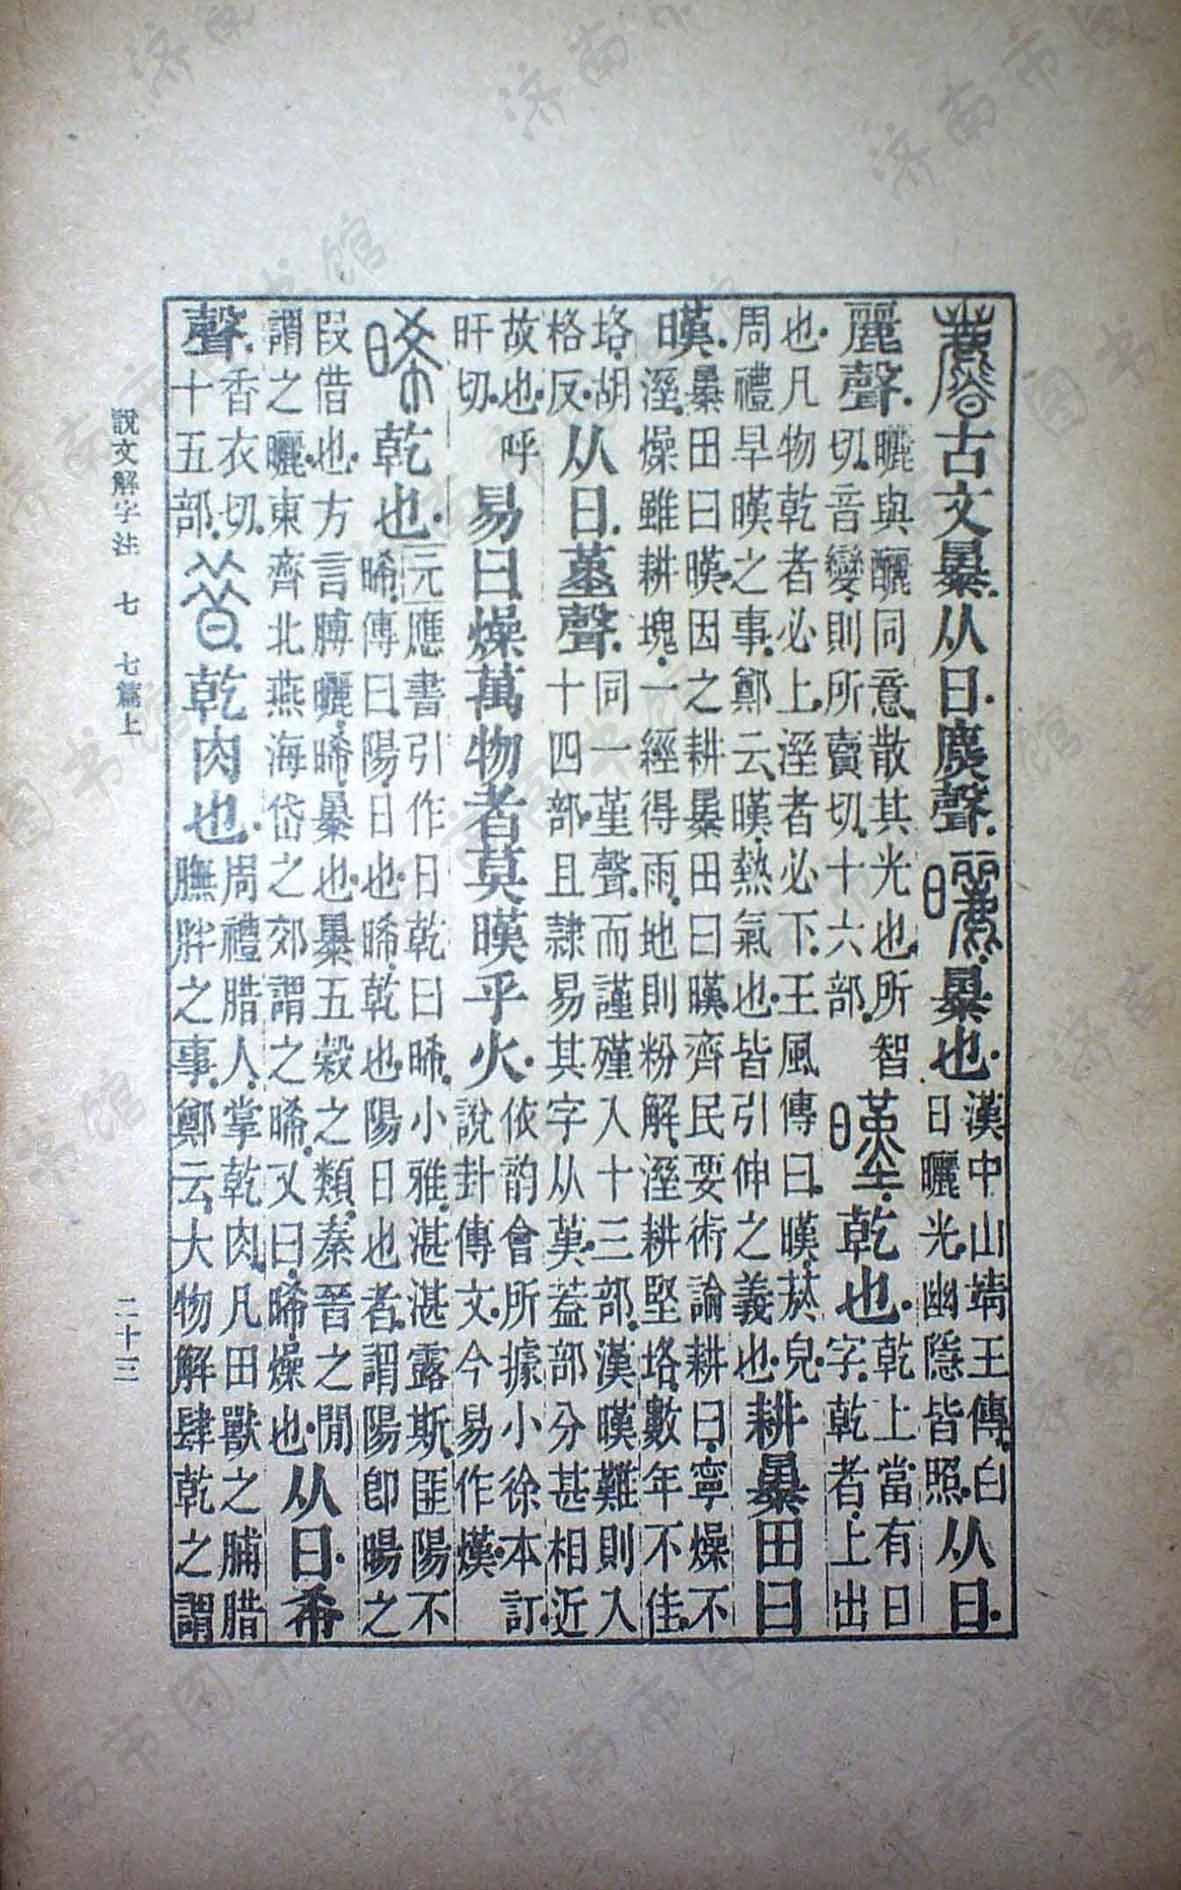 𣋴古文㬥从日。麃聲。曬㬥也。漢中山靖王傳。白日曬光。幽隱皆照。从日。
麗聲。曬與釃同意。散其光也。所智切。音變。則所賣切。十六部。暵乾也。乾上當有日字。乾者。上出
也。凡物乾者必上。溼者必下。王風傳曰。暵。菸皃。周禮旱暵之事。鄭云。暵、熱氣也。皆引伸之義也。耕㬥田曰
暵。㬥田曰暵。因之耕㬥田曰暵。齊民要術論耕曰。寧燥不溼。燥雖耕塊。一經得雨。地則粉解。溼耕堅垎。數年不佳。
垎、胡格反。从日。堇聲。同一堇聲。而謹殣入十三部。漢暵難則入十四部且隷易其字从𦰩。葢部分甚相近
故也。呼旰切。易曰燥萬物者莫暵乎火。依韵會所據小徐本訂。說卦傳文。今易作熯。
晞乾也。元應書引作日乾曰晞。小雅。湛湛露斯。匪陽不晞。傳曰。陽、日也。晞、乾也。陽日也者。謂陽卽暘之
叚借也。方言。膊曬、晞、㬥也。㬥五穀之類。秦晉之閒謂之曬。東齊北燕海岱之郊謂之晞。又曰。晞、燥也。从日。希
聲。香衣切。十五部。昔乾肉也。周禮腊人。掌乾肉。凡田獸之脯腊膴胖之事。鄭云。大物解肆乾之謂
說文解字注 七 七篇上 二十三
济南市图书馆